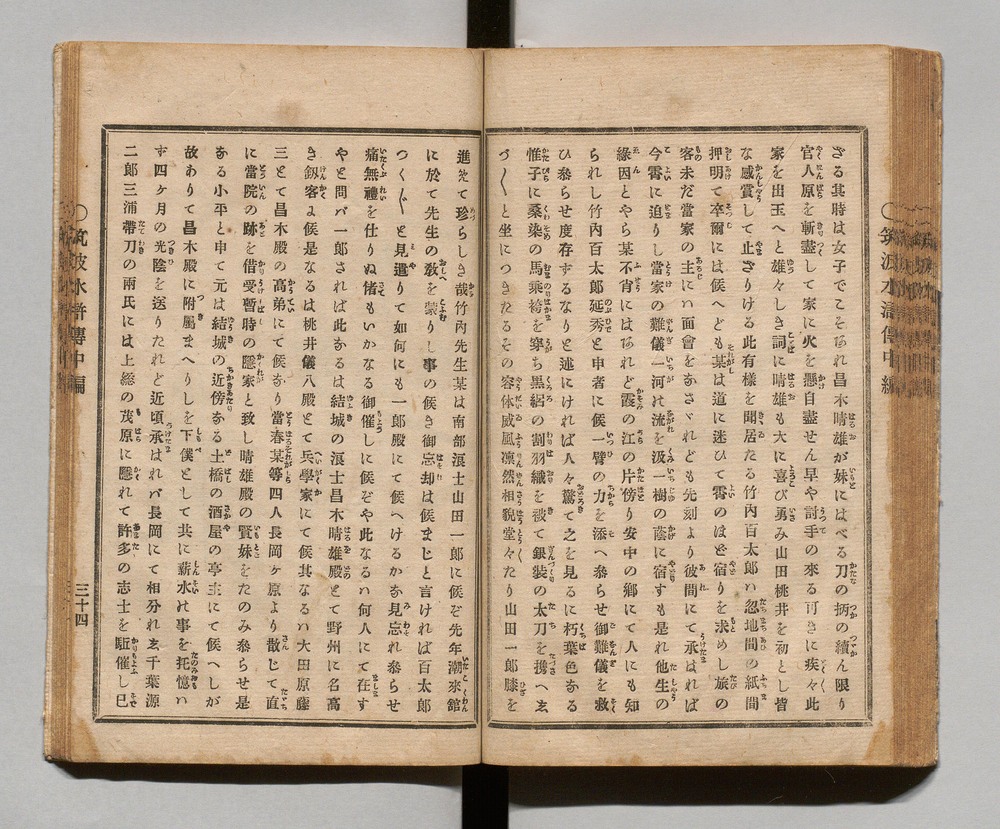 ざる其時は女子でこそあれ昌木晴雄が妹にはべる刀の柄の續ん限り
官人原を斬盡して家に火を懸自盡せん早や討手の來る可きに疾々此
家を出玉へと雄々しき詞に晴雄も大に喜び勇み山田桃井を初とし皆
な感賞して止ざりける此有樣を聞居たる竹內百太郎ハ忽地間の紙間
押明て卒爾には候へども某は道に迷ひて霄のほど宿りを求めし旅の
客未だ當家の主にハ面會をなさゞれども先刻より彼間にて承はれば
今霄に迫りし當家の難儀一河の流を汲一樹の蔭に宿すも是れ他生の
緣因とやら某不肖にはあれど霞の江の片傍り安中の鄕にて人にも知
られし竹內百太郎延秀と申者に候一臂の力を添へ參らせ御難儀を救
ひ參らせ度存するなりと述にければ人々驚て之を見るに朽葉色なる
惟子に桑染の馬乘袴を穿ち黑縐の割羽織を被て銀裝の太刀を携へゑ
づ〱と坐につきたるその容体威風凛然相貌堂々たり山田一郎膝を
進めて珍らしき哉竹內先生某は南部浪士山田一郎に候ぞ先年潮來館
に於て先生の敎を蒙りし事の候き御忘却は候まじと言ければ百太郎
つく〲と見遣りて如何にも一郎殿にて候へけるかな見忘れ參らせ
痛無禮を仕りぬ偖もいかなる御催しに候ぞや此なるハ何人にて在す
やと問バ一郎されば此なるは結城の浪士昌木晴雄殿とて野州に名高
き劔客よ候是なるは桃井儀八殿とて兵學家にて候其なるハ大田原藤
三とて昌木殿の高弟にて候なり當春某等四人長岡ヶ原より散じて直
に當院の跡を借受暫時の隱家と致し晴雄殿の賢妹をたのみ參らせ是
なる小平と申て元は結城の近傍なる土橋の酒屋の亭主にて候へしが
故ありて昌木殿に附屬まへりしを下僕として共に薪水の事を托憶ハ
ず四ヶ月の光陰を送りたれど近頃承はれバ長岡にて相分れゑ千葉源
二郎三浦帶刀の兩氏には上総の茂原に隱れて許多の志士を駈催し已
〇筑波水滸傳中編
〇筑波水滸傳中編
三十四